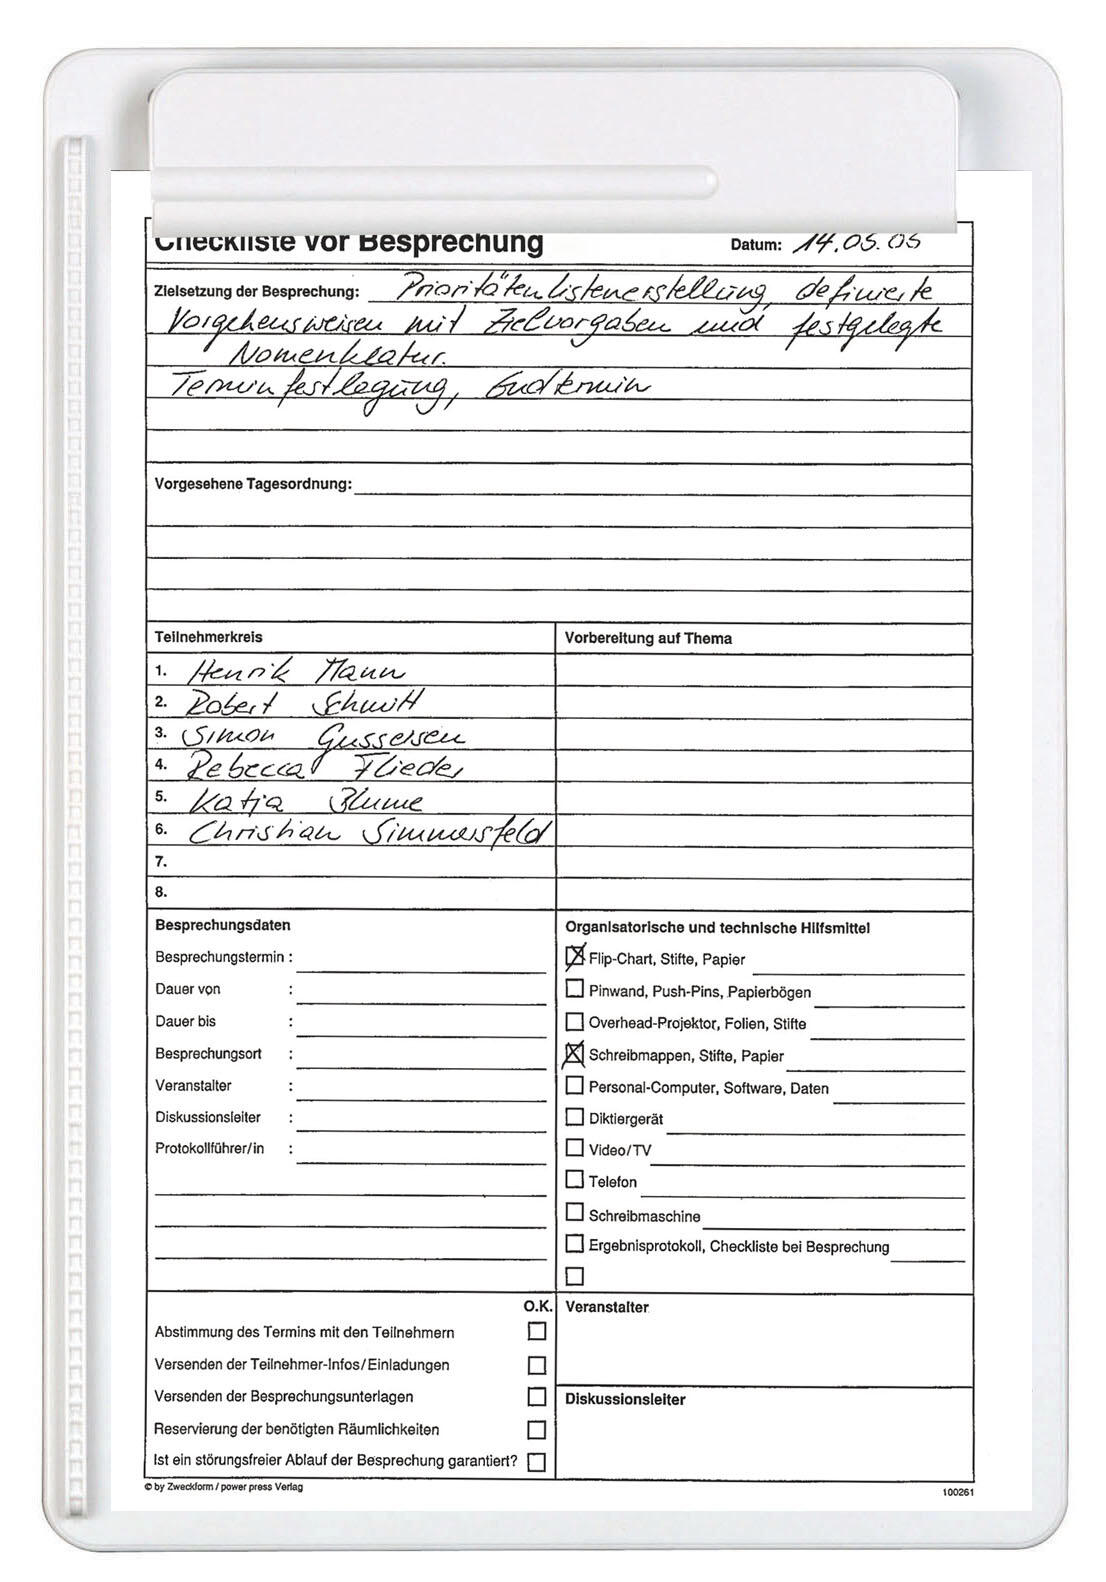 Checkliste vor Besprechung Datum: 14.05.05
Zielsetzung der Besprechung: Prioritätenlistenerstellung, definierte
Vorgehensweisen mit Zielvorgaben und festgelegte
Nomenklatur.
Terminfestlegung, Endtermin
Vorgesehene Tagesordnung:
Teilnehmerkreis Vorbereitung auf Thema
1. Henrik Mann
2. Robert Schmitt
3. Simon Gussersen
4. Rebecca Flieder
5. Katja Blume
6. Christian Simmersfeld
7.
8.
Besprechungsdaten
Besprechungstermin :
Dauer von :
Dauer bis :
Besprechungsort :
Veranstalter :
Diskussionsleiter :
Protokollführer/in :
Organisatorische und technische Hilfsmittel
Flip-Chart, Stifte, Papier
Pinwand, Push-Pins, Papierbögen
Overhead-Projektor, Folien, Stifte
Schreibmappen, Stifte, Papier
Personal-Computer, Software, Daten
Diktiergerät
Video/TV
Telefon
Schreibmaschine
Ergebnisprotokoll, Checkliste bei Besprechung
O.K.
Abstimmung des Termins mit den Teilnehmern
Versenden der Teilnehmer-Infos/Einladungen
Versenden der Besprechungsunterlagen
Reservierung der benötigten Räumlichkeiten
Ist ein störungsfreier Ablauf der Besprechung garantiert?
Veranstalter
Diskussionsleiter
© by Zweckform / power press Verlag
100261